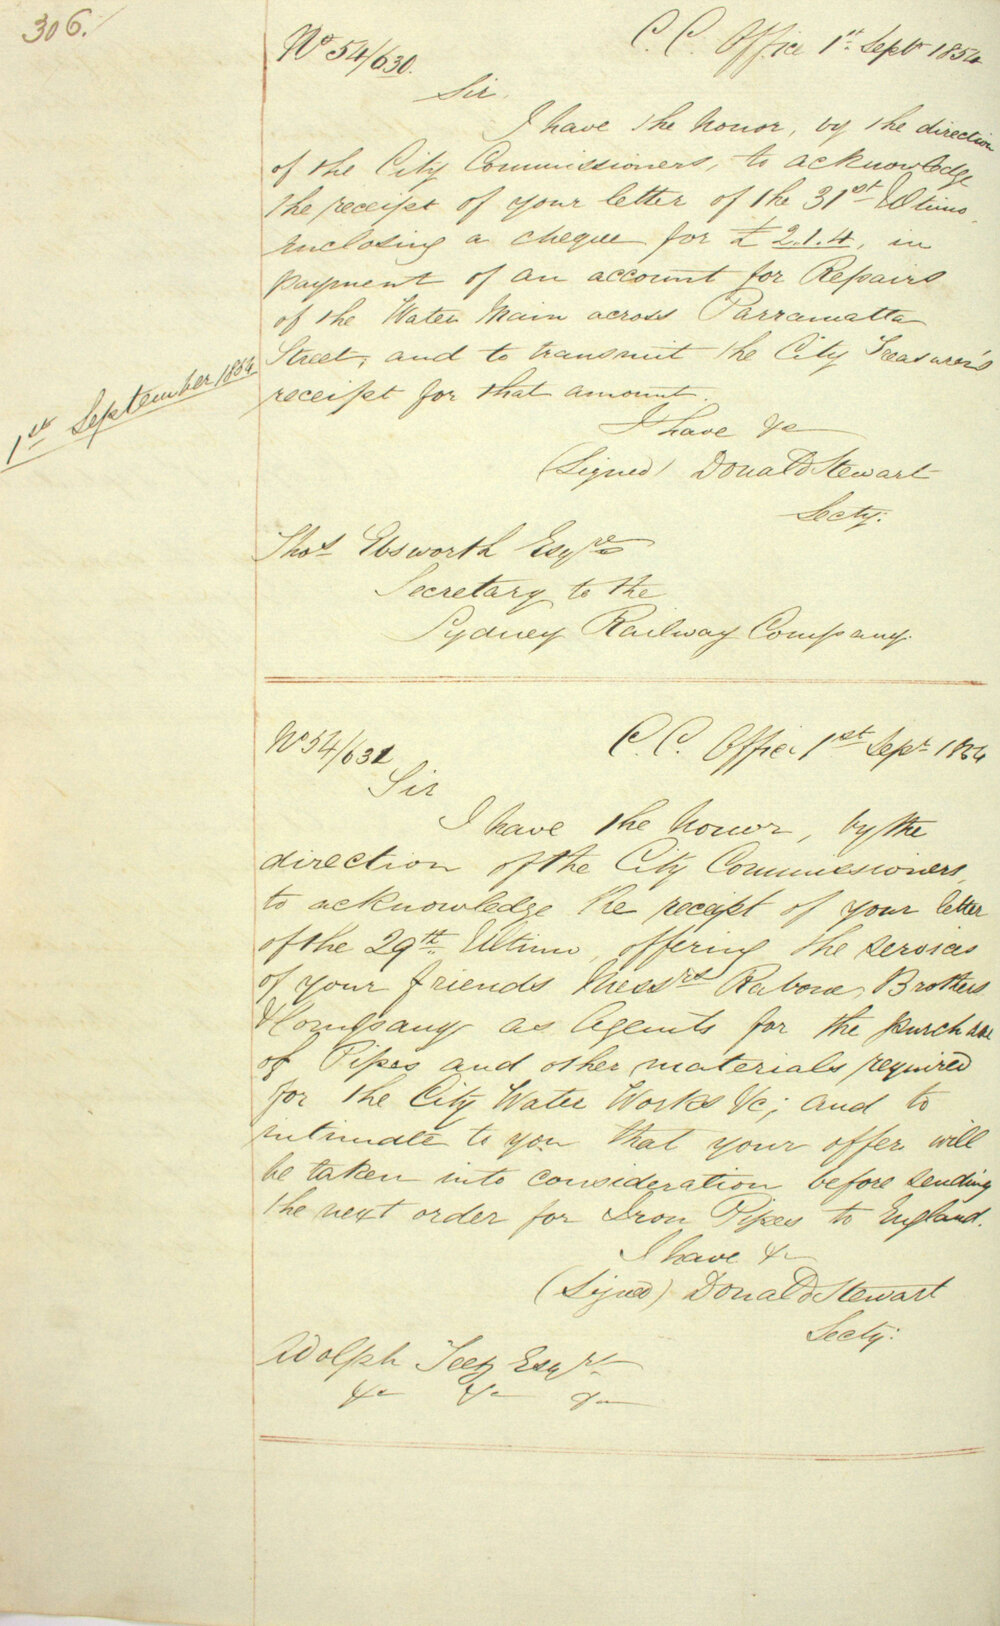 306.
No 54/630.
C. C. Office 1st Septr 1854
Sir
I have the honor, by the direction
of the City Commissioners, to acknowledge
the receipt of your letter of the 31st Ultimo,
enclosing a cheque for £2.1.4, in
payment of an account for Repairs
of the Water Main across Parramatta
Street, and to transmit the City Treasurer's
receipt for that amount.
1st September 1854
I have &c
(Signed) Donald Stewart
Secty:
Thos Ebsworth Esqre
Secretary to the
Sydney Railway Company.
No 54/631
C. C. Office 1st Septr 1854
Sir
I have the honor, by the
direction of the City Commissioners,
to acknowledge the receipt of your letter
of the 29th Ultimo, offering the services
of your friends Messrs Rabone, Brothers
& Company as Agents for the purchase
of Pipes and other materials required
for the City Water Works &c; and to
intimate to you that your offer will
be taken into consideration before sending
the next order for Iron Pipes to England.
I have &c
(Signed) Donald Stewart
Secty:
Adolph Esqr
&c &c &c